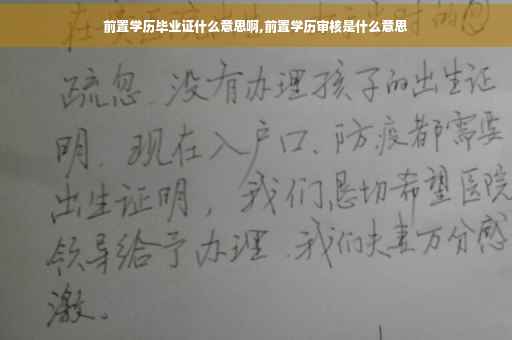 前置学历毕业证什么意思啊,前置学历审核是什么意思
时的
疏忽、没有办理孩子的出生证
明、现在入户口、防疫都需要
出生证明，我们恳切希望医院
领导给予办理、我们夫妻万分感
激。